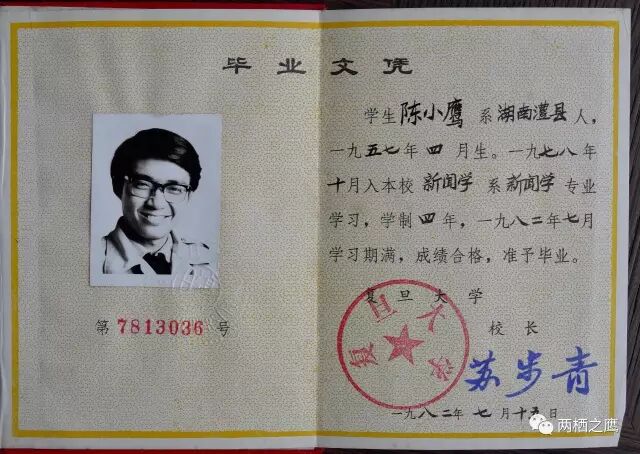 毕业文凭
第 7813036 号
学生陈小鹰系湖南澧县人，
一九五七年四月生。一九七八年
十月入本校新闻学系新闻学专业
学习，学制四年，一九八二年七月
学习期满，成绩合格，准予毕业。
复旦大学
校长
苏步青
复旦大学
一九八二年七月十五日
两栖之鹰